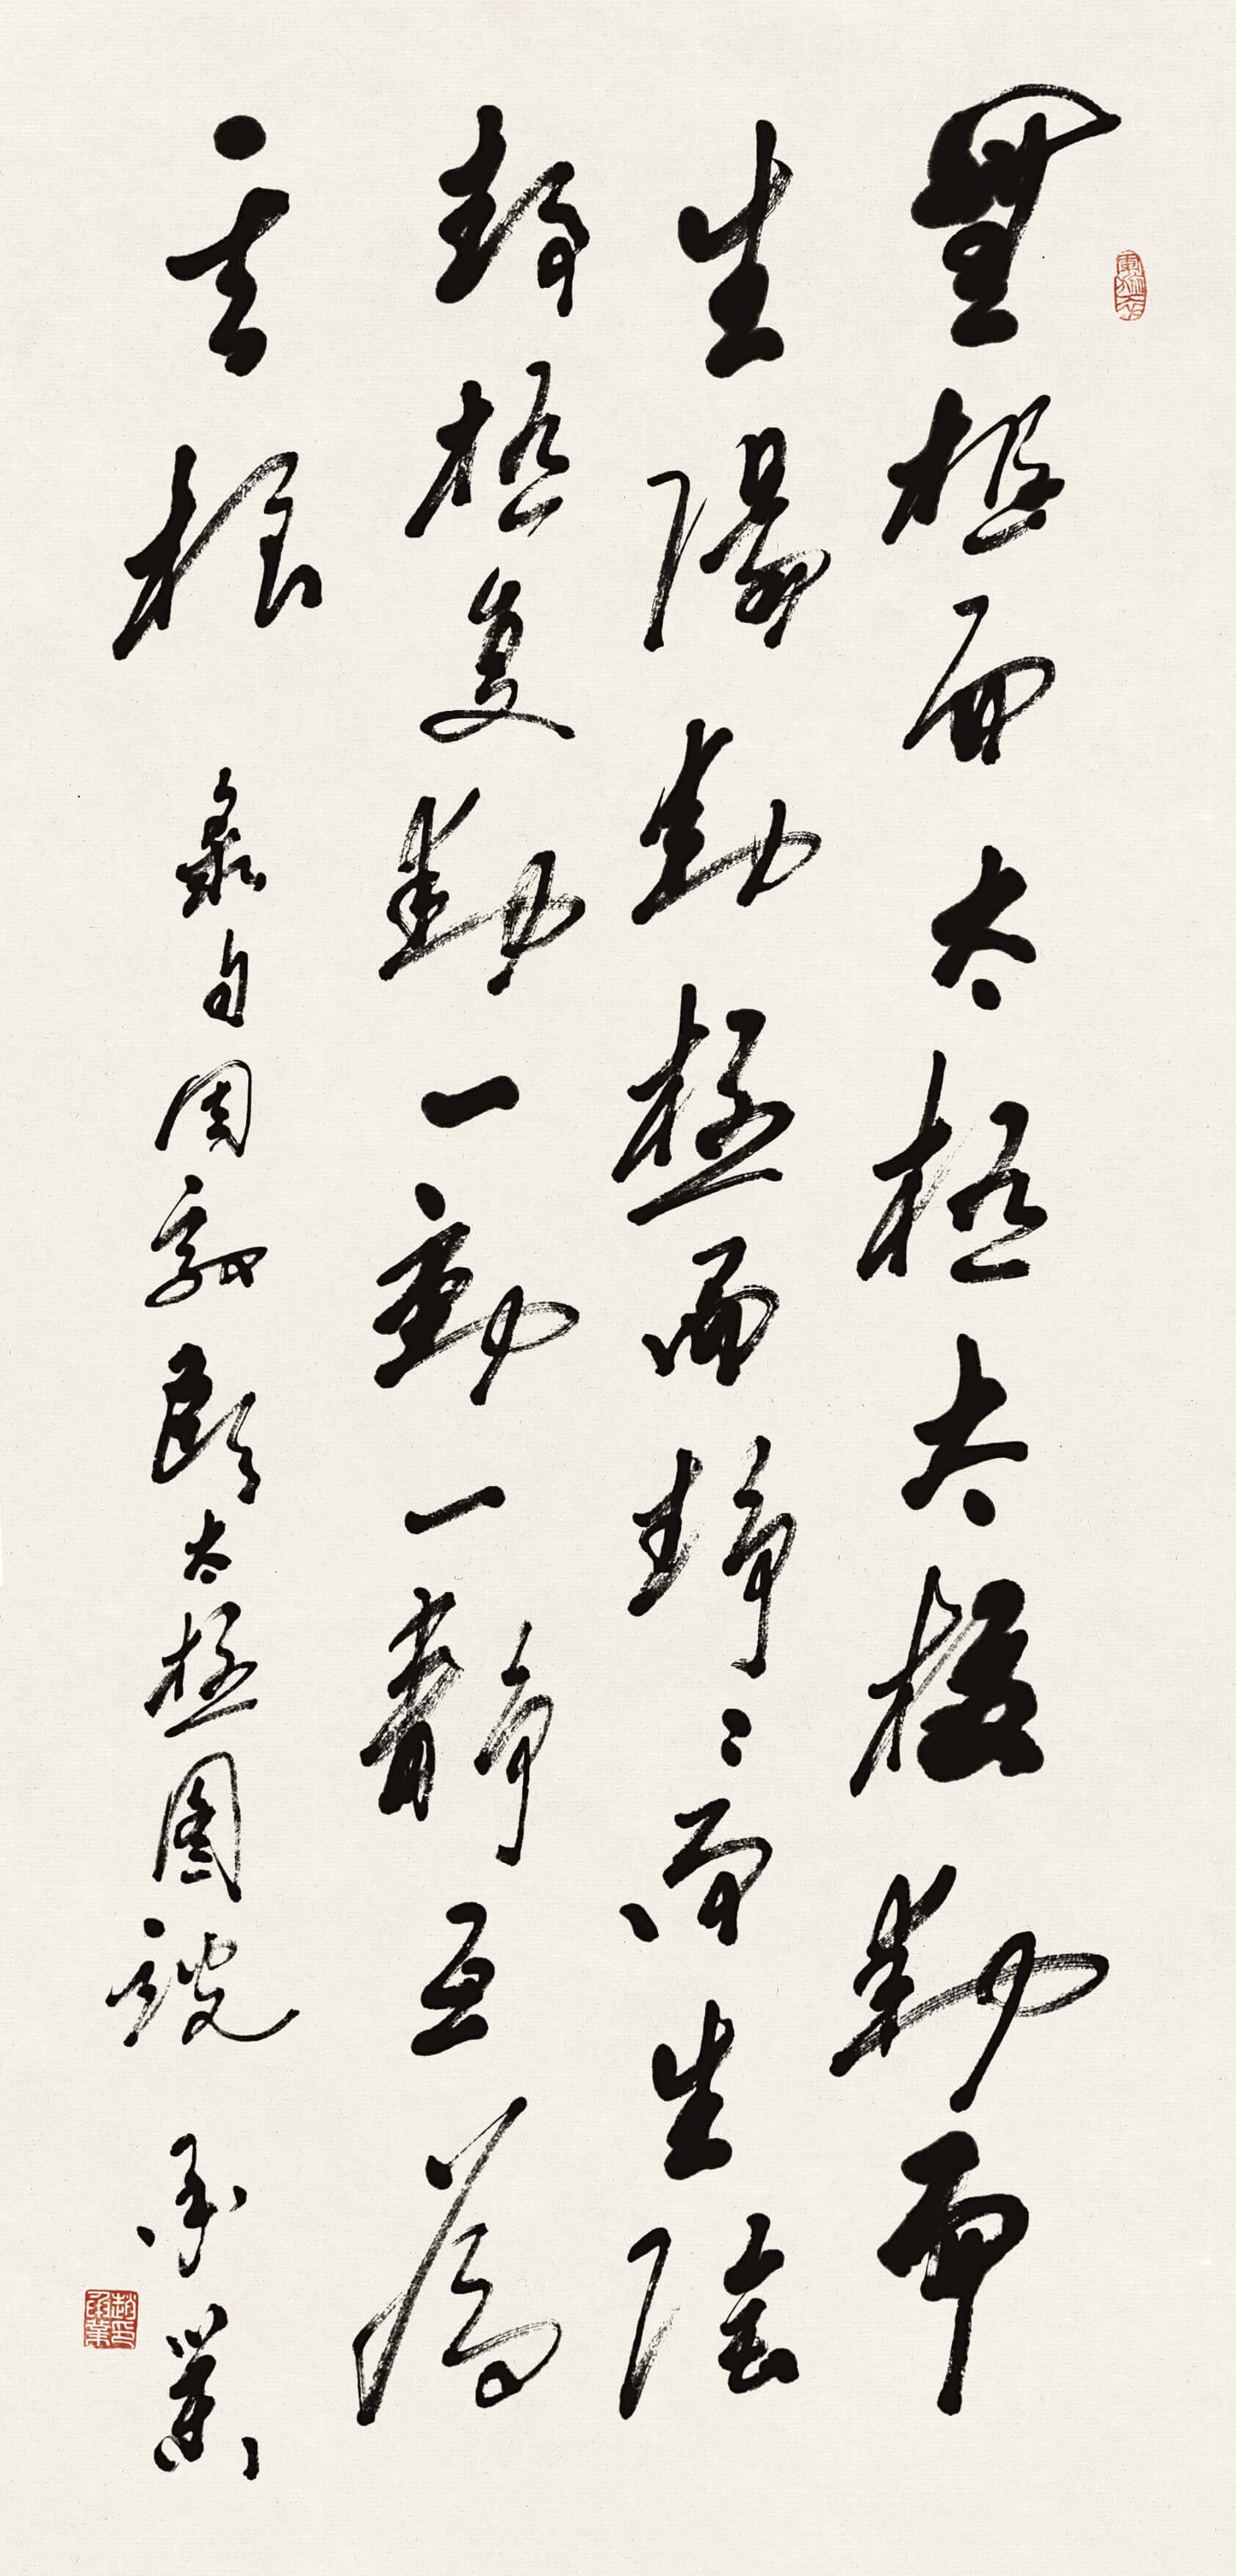 無極而太極太極動而
生陽動極而靜〻而生陰
靜極复動一動一靜互為
其根 彔自周敦頤太極圖說 承業
趙印承業